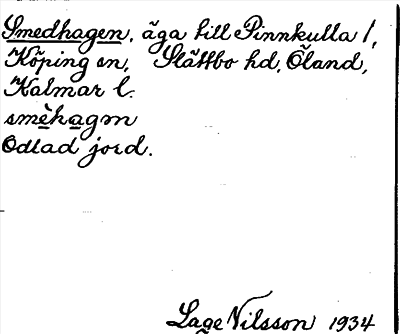 Smedhagen, äga till Pinnkulla 1,
Köping sn, Slättbo hd, Öland,
Kalmar l.
smèhagən
Odlad jord.
Lage Nilsson 1934